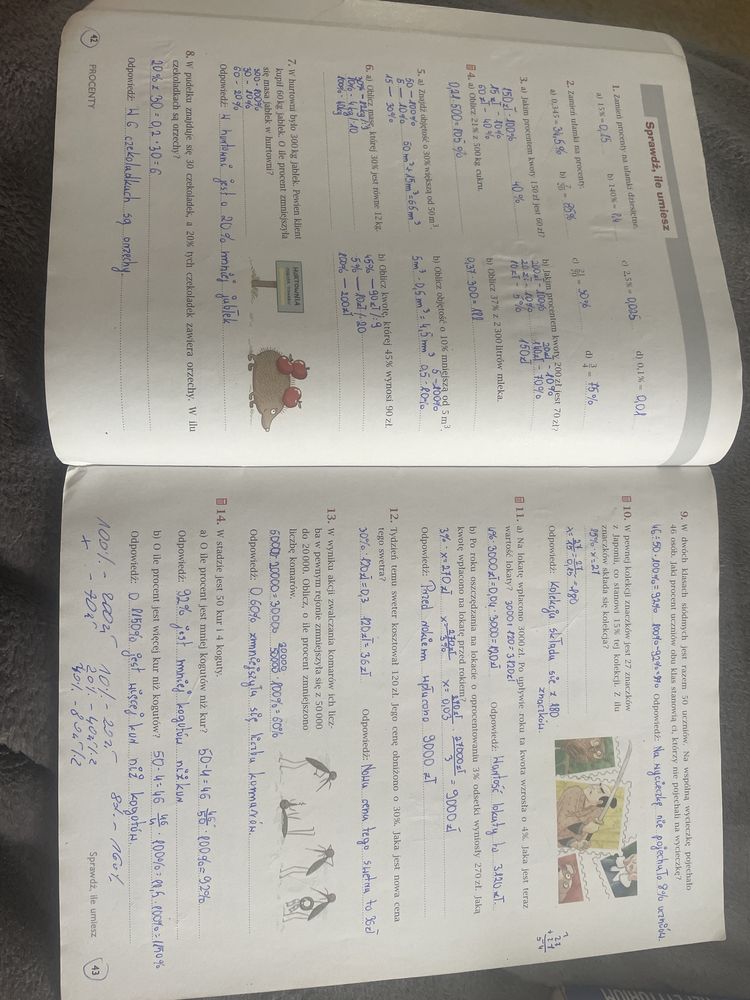 Sprawdź, ile umiesz
1. Zamień procenty na ułamki dziesiętne.
a) 15% = 0,15 b) 140% = 1,4 c) 2,5% = 0,025 d) 0,1% = 0,01
2. Zamień ułamki na procenty.
a) 0,345 = 34,5% b) c) d) 3/4 = 75%
3. a) Jakim procentem kwoty 150 zł jest 60 zł?
150zł - 100%
15 zł - 10%
60 zł - 40%
40%
b) Jakim procentem kwoty 200 zł jest 70 zł?
200zł - 100%
20 zł - 10%
10 zł - 5%
150zł
4. a) Oblicz 21% z 500 kg cukru.
0,21·500=105%
b) Oblicz 37% z 2 300 litrów mleka.
5. a) Znajdź objętość o 30% większą od 50 m³.
50 - 100%
5 - 10%
15 - 30%
50 m³ + 15m³ = 65 m³
b) Oblicz objętość o 10% mniejszą od 5 m³.
5 - 100%
0,5 - 10%
6. a) Oblicz masę, której 30% jest równe 12 kg.
b) Oblicz kwotę, której 45% wynosi 90 zł.
45% - 90zł /:9
5% - 10zł /·20
100% - 200zł
7. W hurtowni było 300 kg jabłek. Pewien klient
kupił 60 kg jabłek. O ile procent zmniejszyła
się masa jabłek w hurtowni?
300 - 100%
30 - 10%
60 - 20%
HURTOWNIA
Odpowiedź: W hurtowni jest o 20% mniej jabłek
8. W pudełku znajduje się 30 czekoladek, a 20% tych czekoladek zawiera orzechy. W ilu
czekoladkach są orzechy?
20% z 30 = 0,2 · 30 = 6
Odpowiedź: W 6 czekoladkach są orzechy
42 PROCENTY
9. W dwóch klasach siódmych jest razem 50 uczniów. Na wspólną wycieczkę pojechało
46 osób. Jaki procent uczniów obu klas stanowią ci, którzy nie pojechali na wycieczkę?
46:50·100% = 92% 100%-92%=8% Odpowiedź: Na wycieczkę nie pojechało 8% uczniów.
10. W pewnej kolekcji znaczków jest 27 znaczków
z Japonii, co stanowi 15% tej kolekcji. Z ilu
znaczków składa się kolekcja?
15% · x = 27
Odpowiedź: Kolekcja składa się z 180
znaczków.
11. a) Na lokatę wpłacono 3 000 zł. Po upływie roku ta kwota wzrosła o 4%. Jaka jest teraz
wartość lokaty? 3000+120=3120zł
4%·3000zł=0,04·3000=120zł Odpowiedź: Wartość lokaty to 3120 zł.
b) Po roku oszczędzania na lokacie o oprocentowaniu 3% odsetki wyniosły 270 zł. Jaką
kwotę wpłacono na lokatę przed rokiem?
3% · x = 270 zł x = 270zł/3% x = 270zł/0,03 = 27000zł/3 = 9000 zł
Odpowiedź: Przed rokiem wpłacono 9000 zł
12. Tydzień temu sweter kosztował 120 zł. Jego cenę obniżono o 30%. Jaka jest nowa cena
tego swetra?
30% · 120zł = 0,3 · 120zł = 36zł Odpowiedź: Nowa cena tego swetra to 36zł
13. W wyniku akcji zwalczania komarów ich licz-
ba w pewnym rejonie zmniejszyła się z 50 000
do 20 000. Oblicz, o ile procent zmniejszono
liczbę komarów.
Odpowiedź: O 60% zmniejszyła się liczba komarów.
14. W stadzie jest 50 kur i 4 koguty.
a) O ile procent jest mniej kogutów niż kur? 50-4=46 46/50 · 100% = 92%
Odpowiedź: 92% jest mniej kogutów niż kur
b) O ile procent jest więcej kur niż kogutów? 50-4=46 46/4 · 100% = 11,5 · 100% = 1150%
Odpowiedź: O 1150% jest więcej kur niż kogutów.
100% - 200zł
x - 70zł
10% - 20zł
20% - 40zł
Sprawdź, ile umiesz 43